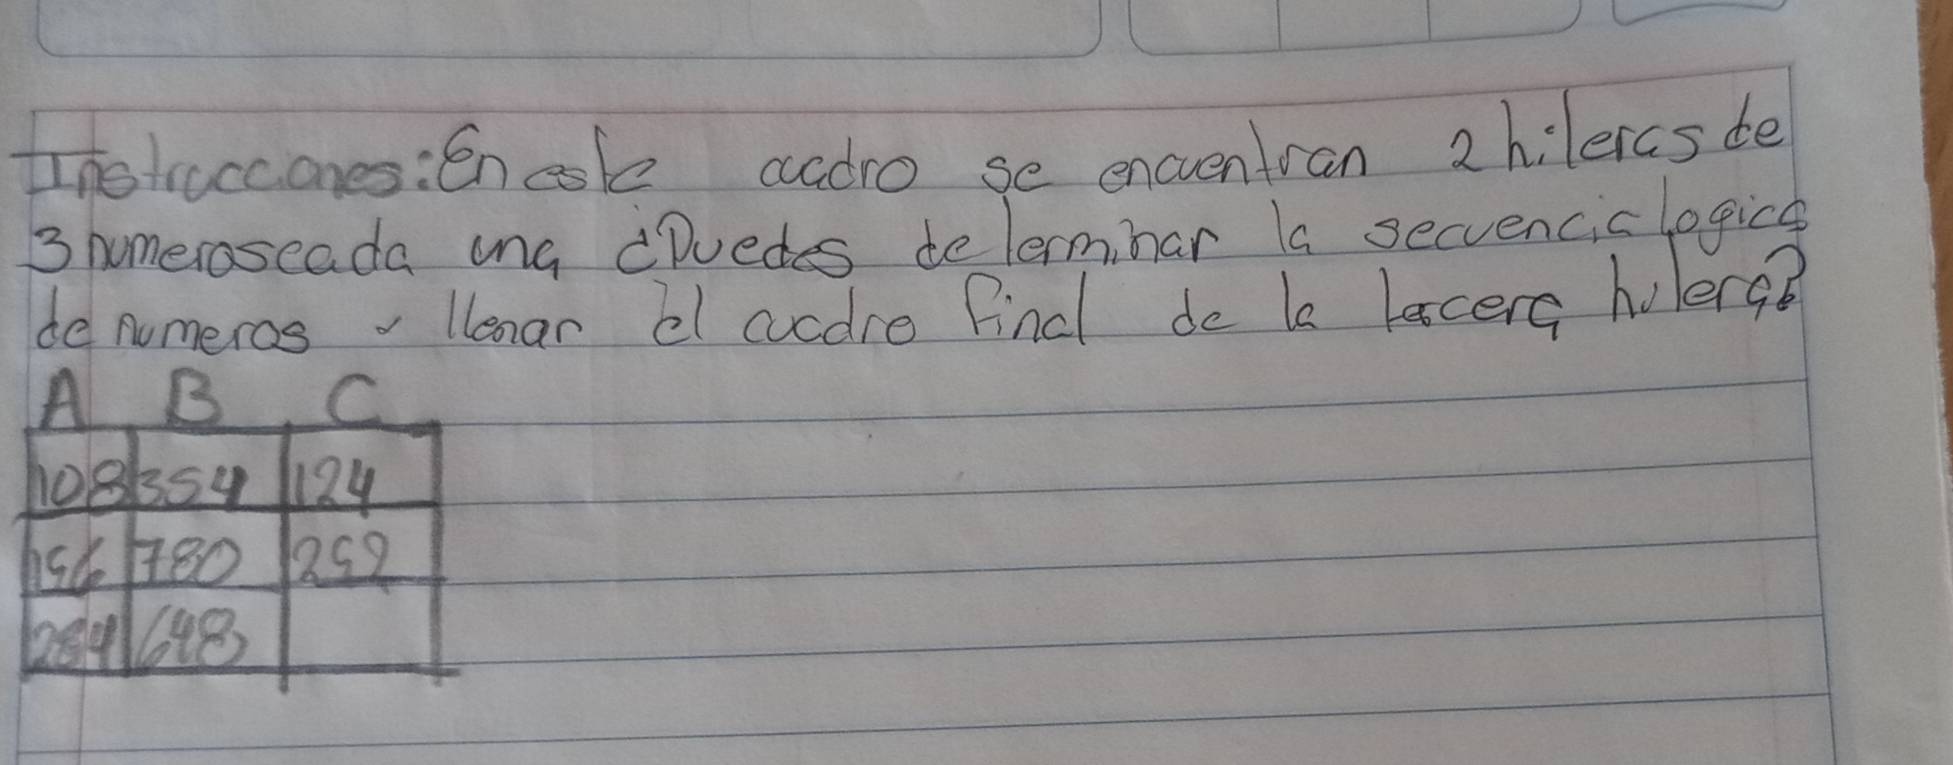 Instrucciones: En este cuadro se encuentran 2 hileras de
3 numeros cada una ¿Puedes determinar la secuencia logica
de numeros y llenar el cuadro final de la tercera hilera?
A B C
108 354 124
156 780 252
284 648